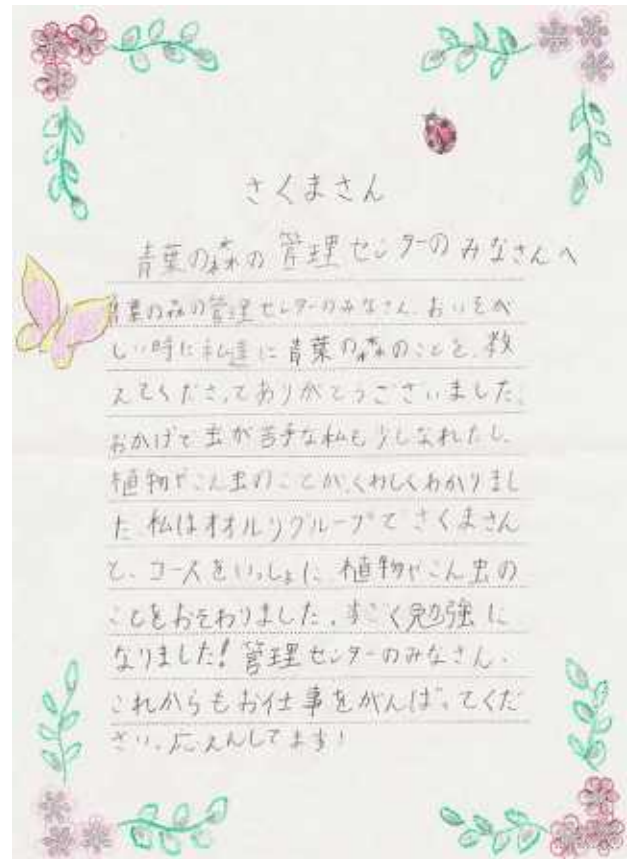 さくまさん
青葉の森の管理センターのみなさんへ
青葉の森の管理センターのみなさん、おいそが
しい時に私達に青葉の森のことを、教
えてくださってありがとうございました。
おかげで虫が苦手な私も少しなれたし、
植物やこん虫のことが、くわしくわかりまし
た。私はオオルリグループでさくまさん
と、コースをいっしょに、植物やこん虫の
ことをおそわりました。すごく勉強に
なりました!管理センターのみなさん、
これからもお仕事をがんばってくだ
さい。応えんしてます!